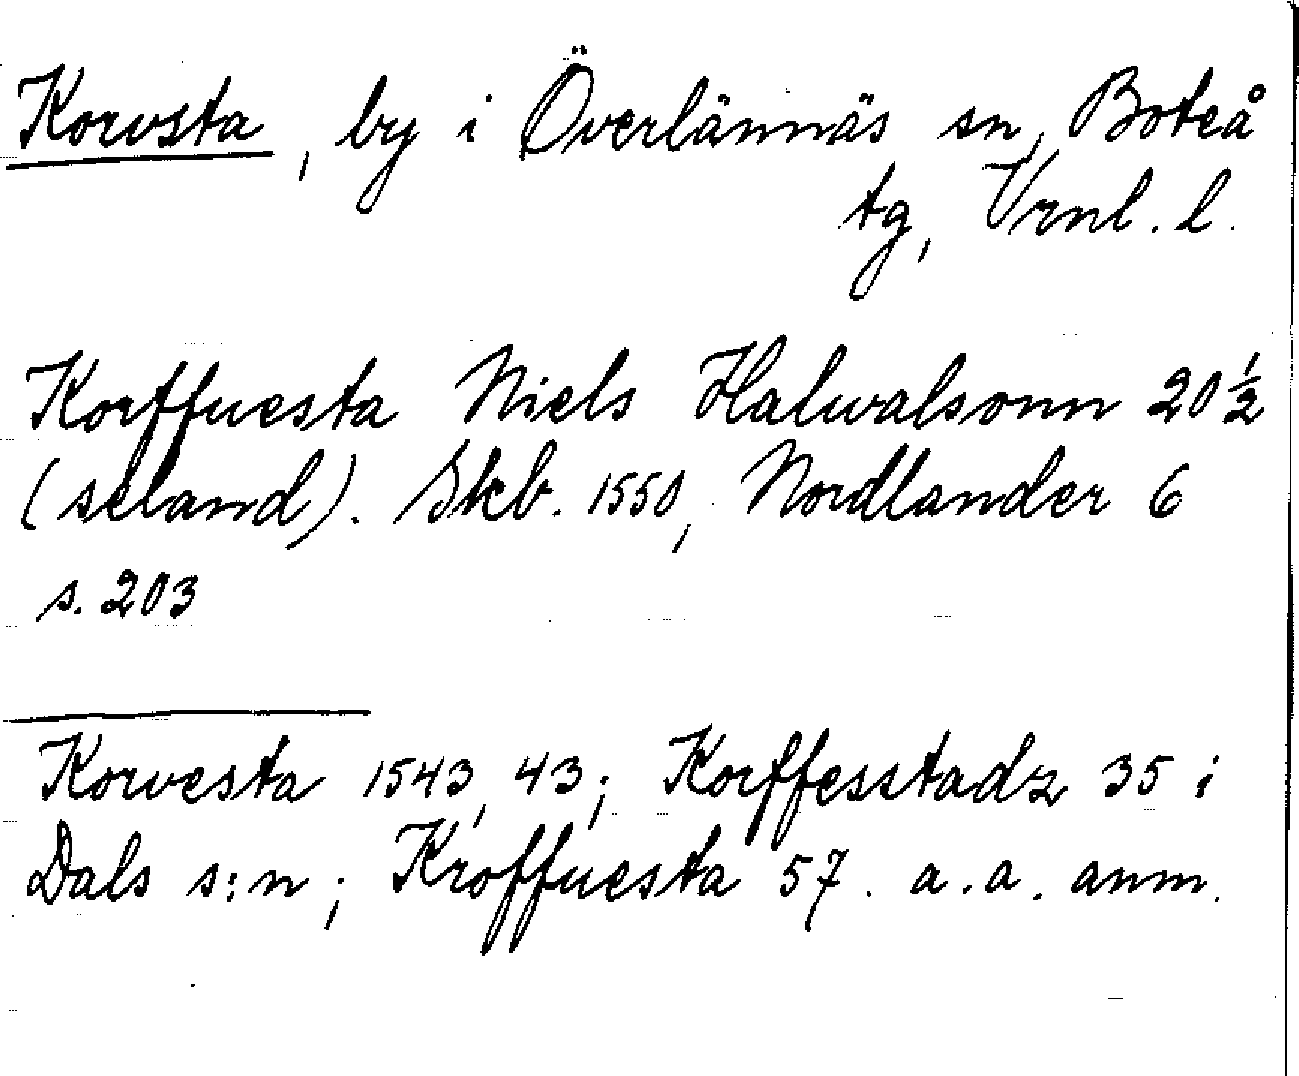 Korvsta, by i Överlännäs sn, Boteå
tg, Vrnl. l.
Korffuesta Niels Halwalsonn 20 ½
(seland). Skb. 1550, Nordlander 6
s. 203
Korvesta 1543, 43; Korffesstadz 35 i
Dals s:n; Kroffuesta 57. a.a. anm.